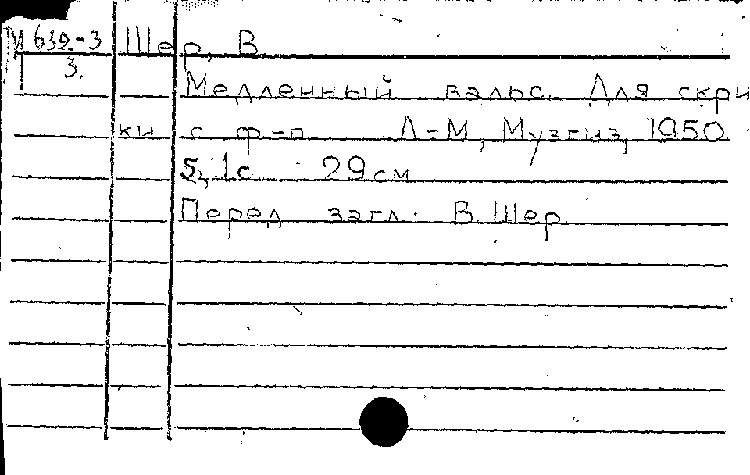 М 639-3 Шер, В.
3.
Медленный вальс. Для скрип
ки с ф-п. Л-М, Музгиз, 1950
5, 1с 29см
Перед загл: В. Шер